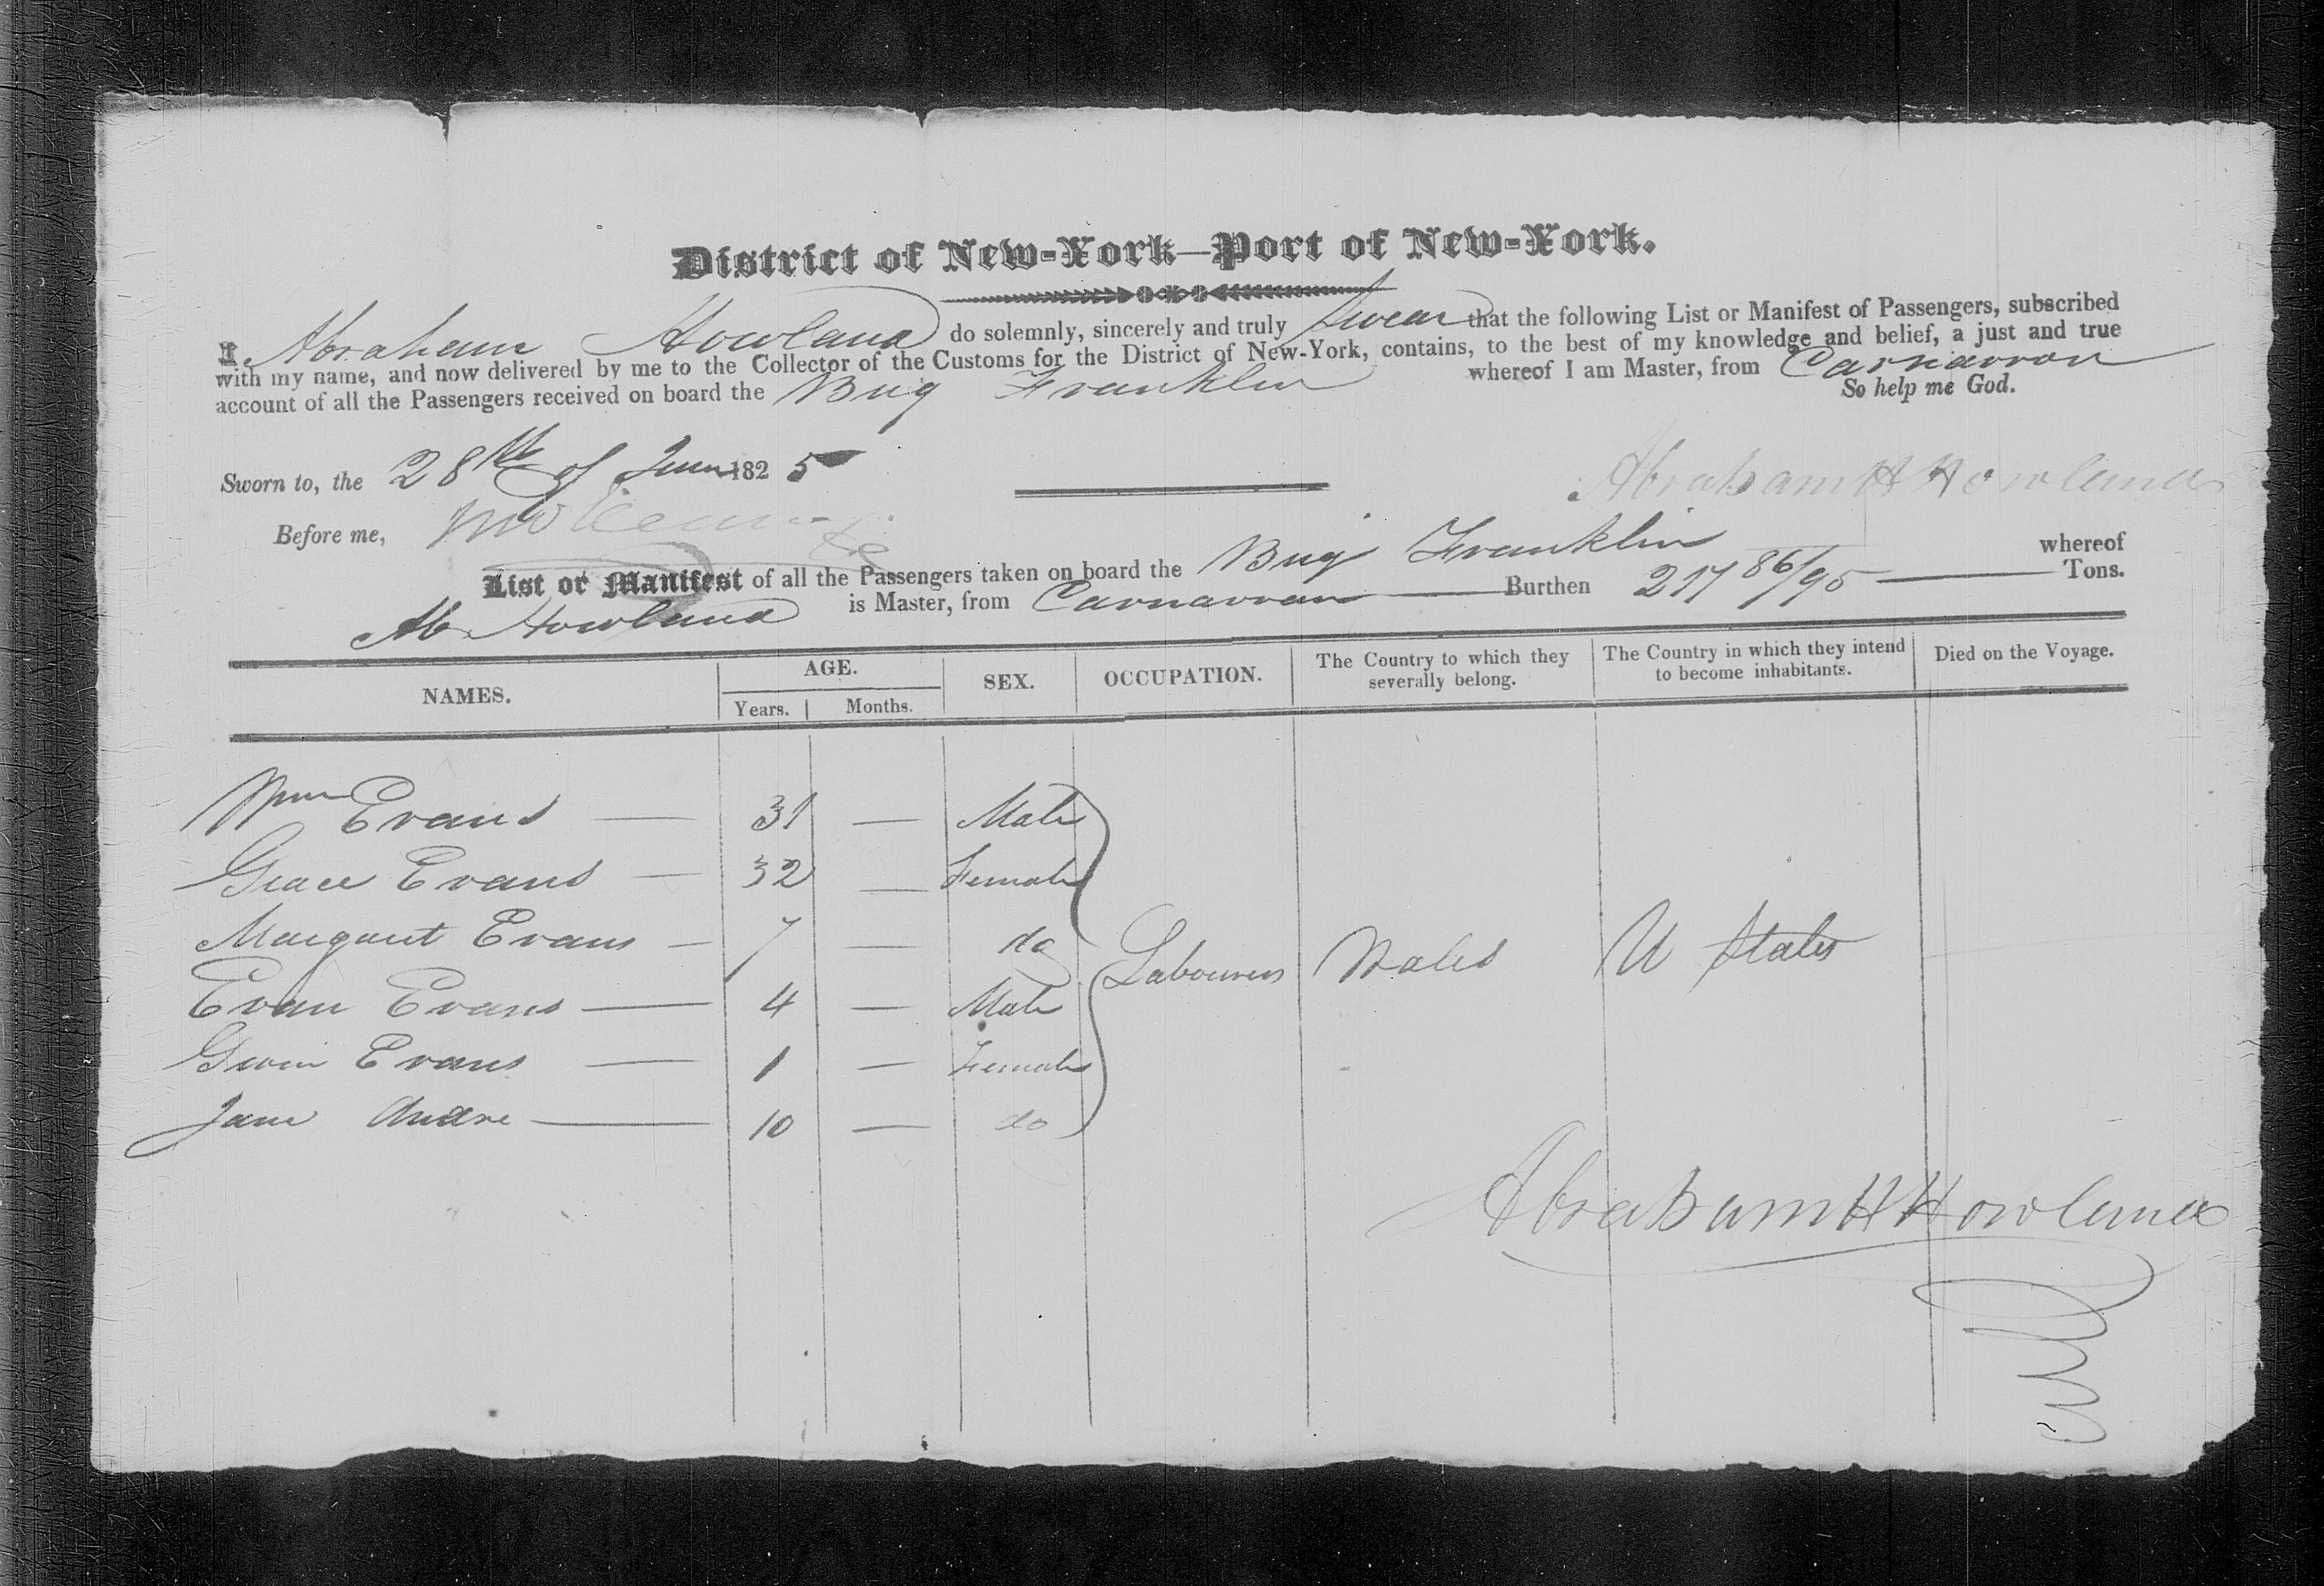 District of New-York—Port of New-York.
I Abraham Howland do solemnly, sincerely and truly swear that the following List or Manifest of Passengers, subscribed
with my name, and now delivered by me to the Collector of the Customs for the District of New-York, contains, to the best of my knowledge and belief, a just and true
account of all the Passengers received on board the Brig Franklin whereof I am Master, from Carnarvon
So help me God.
Sworn to, the 28th of June 1825
Abraham H Howland
Before me,
List or Manifest of all the Passengers taken on board the Brig Franklin whereof
Ab Howland is Master, from Carnarvon Burthen 217 86/95 Tons.
NAMES. AGE. SEX. OCCUPATION. The Country to which they severally belong. The Country in which they intend to become inhabitants. Died on the Voyage.
Years. Months.
Wm Evans — 31 — Male
Grace Evans — 32 — Female
Margaret Evans — 7 — do
Labourers Wales U States
Evan Evans — 4 — Male
Gwin Evans — 1 — Female
Jane — 10 — do
Abraham H Howland